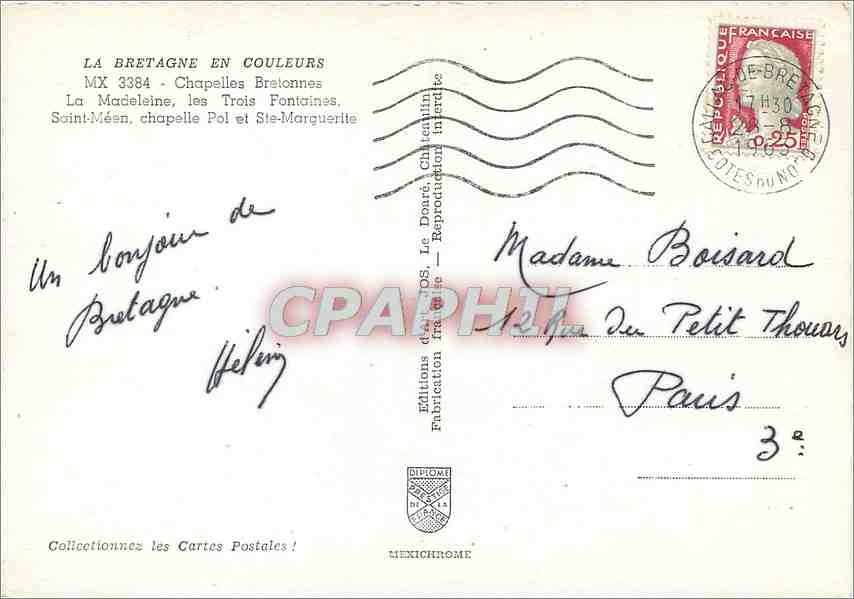 LA BRETAGNE EN COULEURS
MX 3384 - Chapelles Bretonnes
La Madeleine, les Trois Fontaines,
Saint-Méen, chapelle Pol et Ste-Marguerite
Un bonjour de
Bretagne.
Editions d'Art JOS, Le Doaré, Châteaulin
Fabrication française — Reproduction interdite
REPUBLIQUE FRANÇAISE
POSTES
0,25
DE-BRETAGNE
17H30
COTES DU NORD
Madame Boisard
12 Rue Du Petit Thouars
Paris
3e
CPAPHIL
DIPLOME
PRESTIGE
DE LA
FRANCE
MEXICHROME
Collectionnez les Cartes Postales !